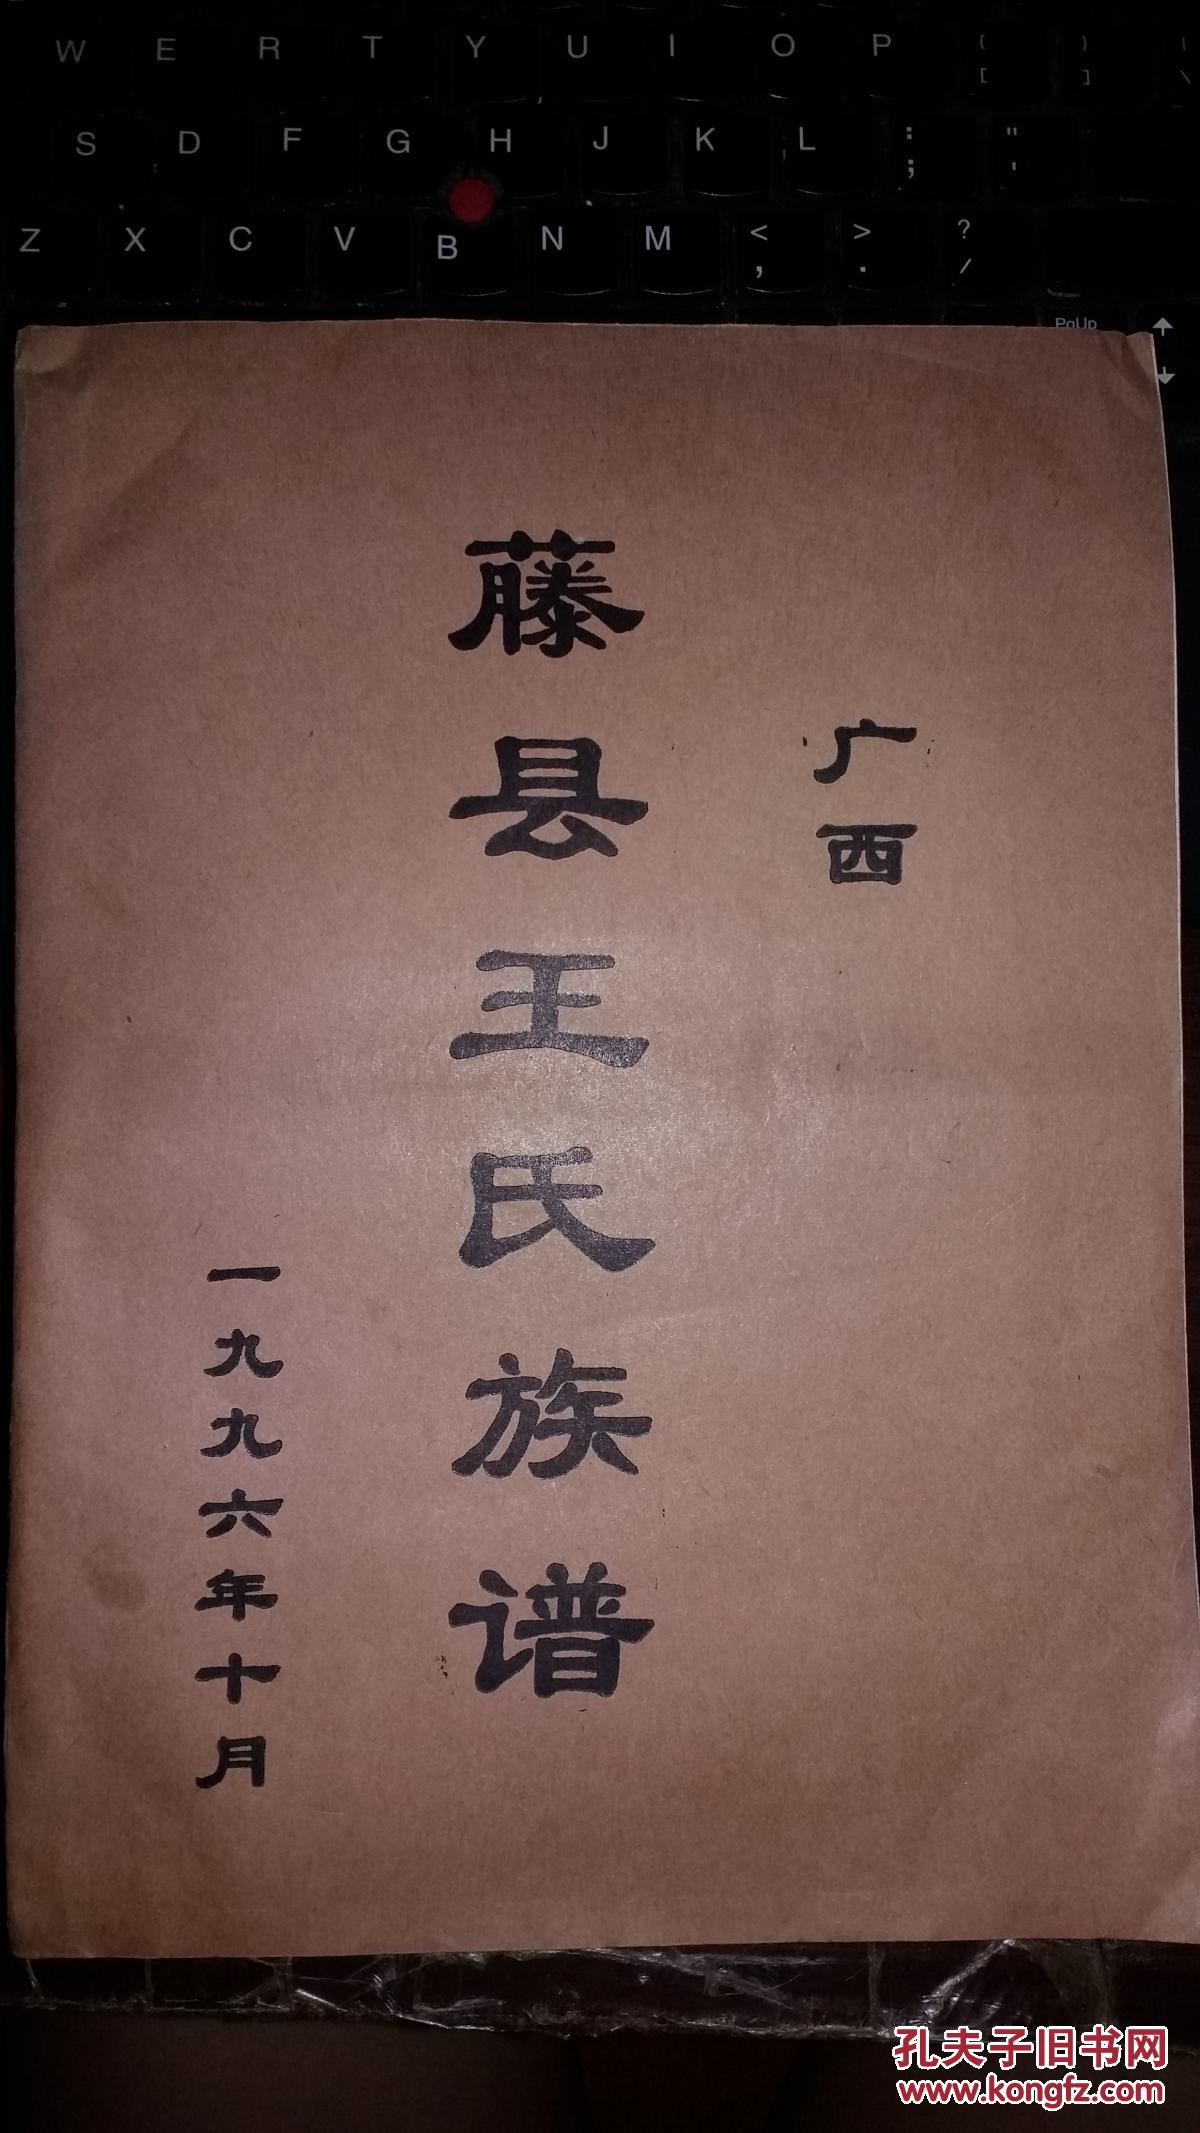 W E R T Y U I O P { [ } ] | \
S D F G H J K L : ; " '
Z X C V B N M < , > . ? /
PgUp
广西
藤县王氏族谱
一九九六年十月
孔夫子旧书网
www.kongfz.com